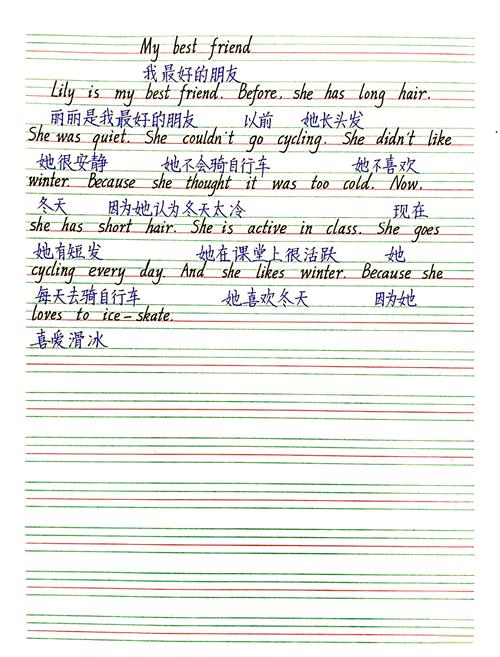 My best friend
我最好的朋友
Lily is my best friend. Before, she has long hair.
丽丽是我最好的朋友 以前 她长头发
She was quiet. She couldn't go cycling. She didn't like
她很安静 她不会骑自行车 她不喜欢
winter. Because she thought it was too cold. Now,
冬天 因为她认为冬天太冷 现在
she has short hair. She is active in class. She goes
她有短发 她在课堂上很活跃 她
cycling every day. And she likes winter. Because she
每天去骑自行车 她喜欢冬天 因为她
loves to ice-skate.
喜爱滑冰